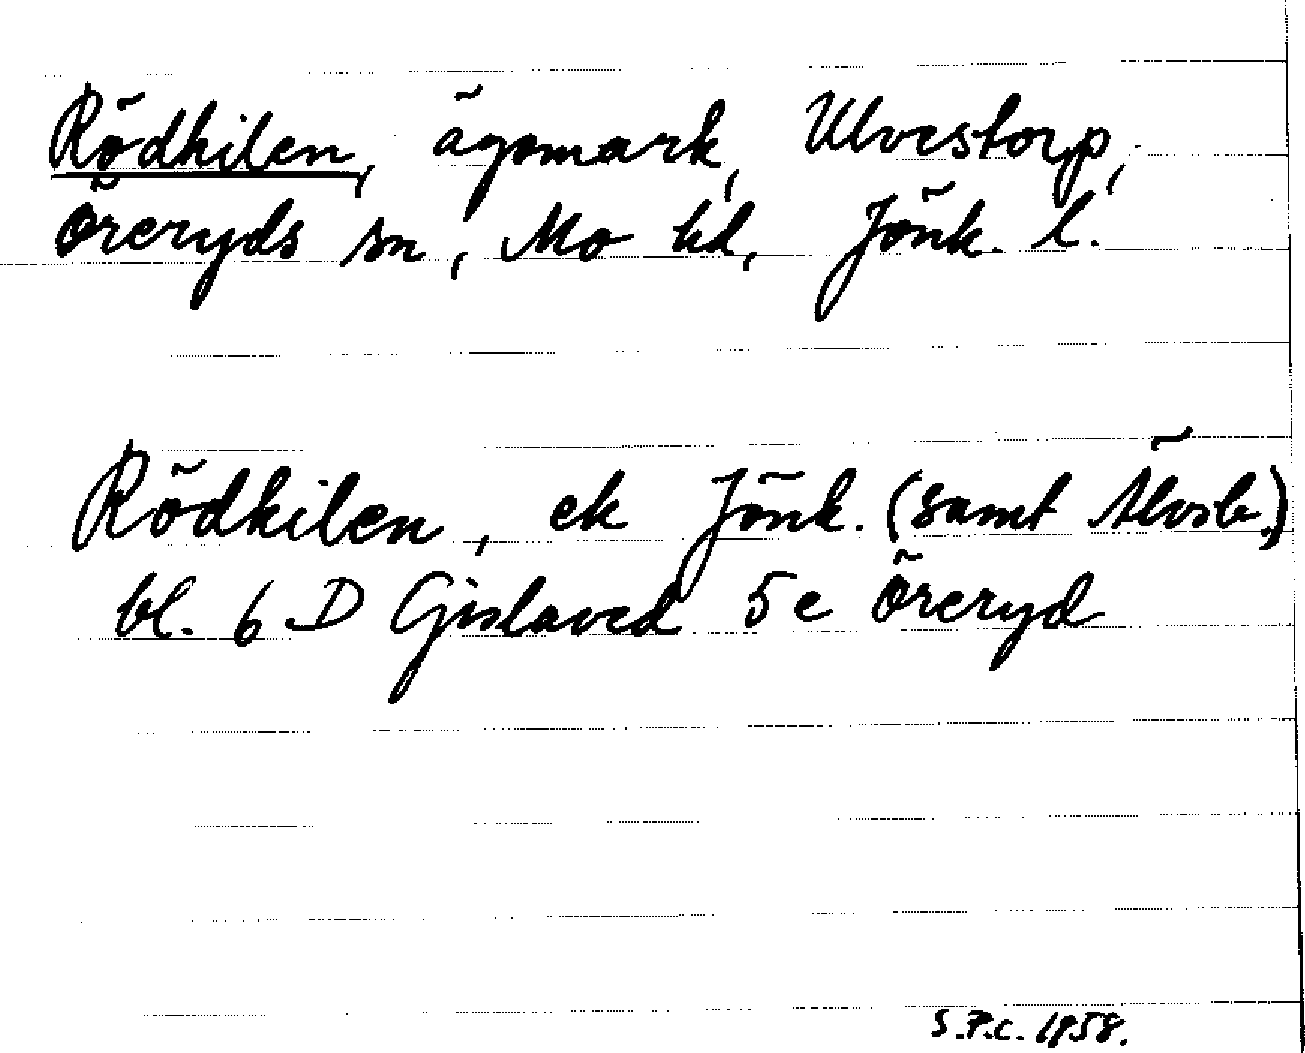 Rödkilen, ägomark, Ulvestorp,
Öreryds sn, Mo hd, Jönk. l.
Rödkilen, ek Jönk. (samt Älvsb.)
bl. 6 D Gislaved 5e Öreryd
S.P.C. 1958.